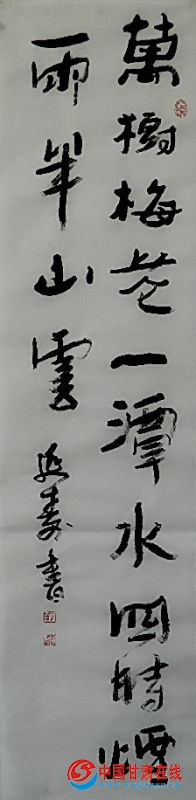 萬樹梅花一潭水四時煙
雨半山雲
延壽書
中国甘肃在线